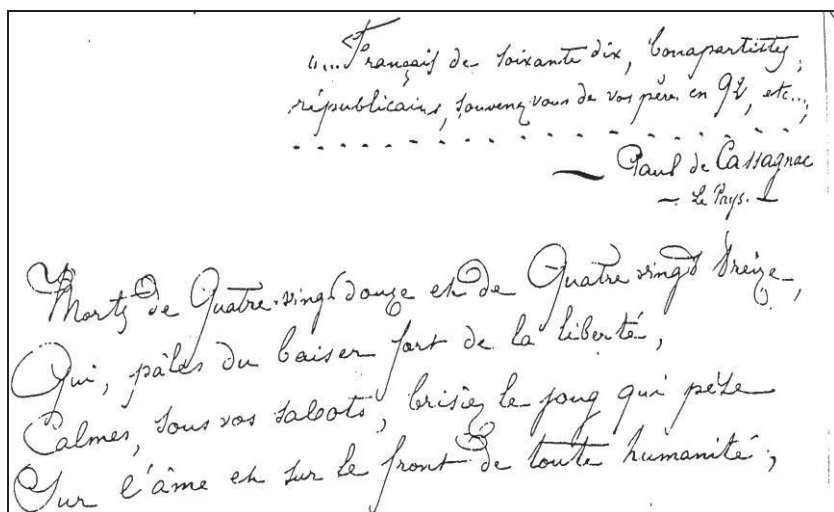 "... Français de soixante dix, bonapartistes,
républicains, souvenez-vous de vos pères en 92, etc...;
. . . . . . . . . . . . . . . . . . . .
— Paul de Cassagnac
— Le Pays. —
Morts de Quatre-vingt-douze et de Quatre vingt treize,
Qui, pâles du baiser fort de la liberté,
Calmes, sous vos sabots, brisiez le joug qui pèse
Sur l'âme et sur le front de toute humanité;